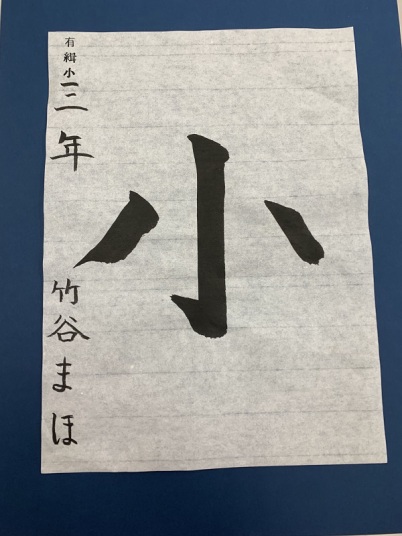 小
有緝小三年 竹谷まほ